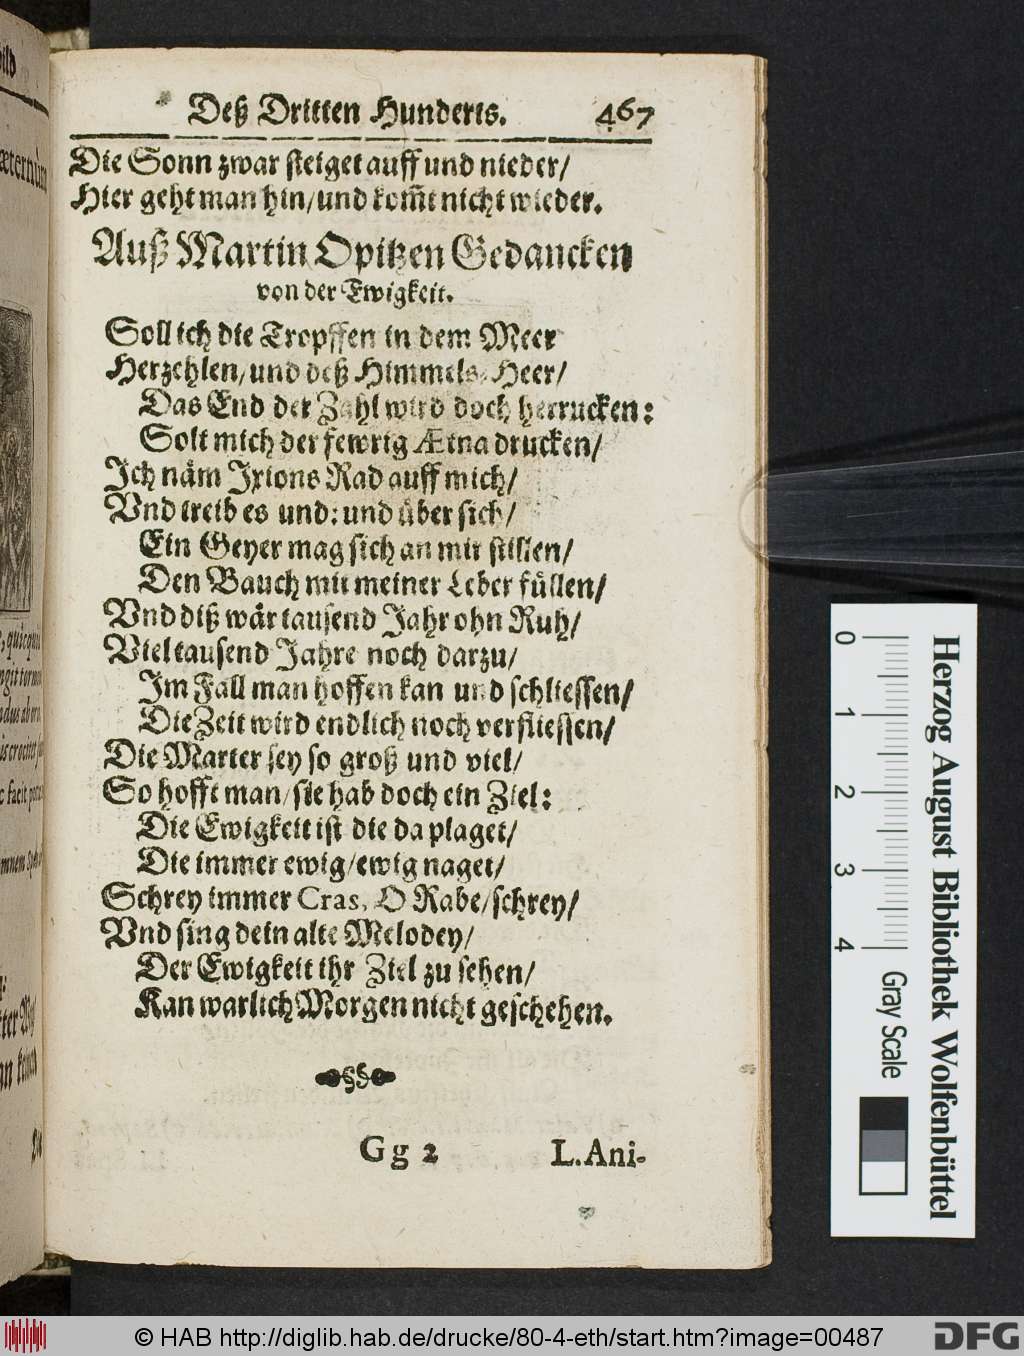 Deß Dritten Hunderts. 467
Die Sonn zwar steiget auff und nieder/
Hier geht man hin/und kom̃t nicht wieder.
Auß Martin Opitzen Gedancken
von der Ewigkeit.
Soll ich die Tropffen in dem Meer
Herzehlen/und deß Himmels-Heer/
Das End der Zahl wird doch herrucken:
Solt mich der fewrig Ætna drucken/
Ich näm Ixions Rad auff mich/
Vnd treib es und: und über sich/
Ein Geyer mag sich an mir stillen/
Den Bauch mit meiner Leber füllen/
Vnd diß wär tausend Jahr ohn Ruh/
Viel tausend Jahre noch darzu/
Im Fall man hoffen kan und schliessen/
Die Zeit wird endlich noch verfliessen/
Die Marter sey so groß und viel/
So hofft man/sie hab doch ein Ziel:
Die Ewigkeit ist die da plaget/
Die immer ewig/ewig naget/
Schrey immer Cras, O Rabe/schrey/
Vnd sing dein alte Melodey/
Der Ewigkeit ihr Ziel zu sehen/
Kan warlich Morgen nicht geschehen.
Gg 2 L.Ani-
0 1 2 3 4
Herzog August Bibliothek Wolfenbüttel
Gray Scale
© HAB http://diglib.hab.de/drucke/80-4-eth/start.htm?image=00487
DFG